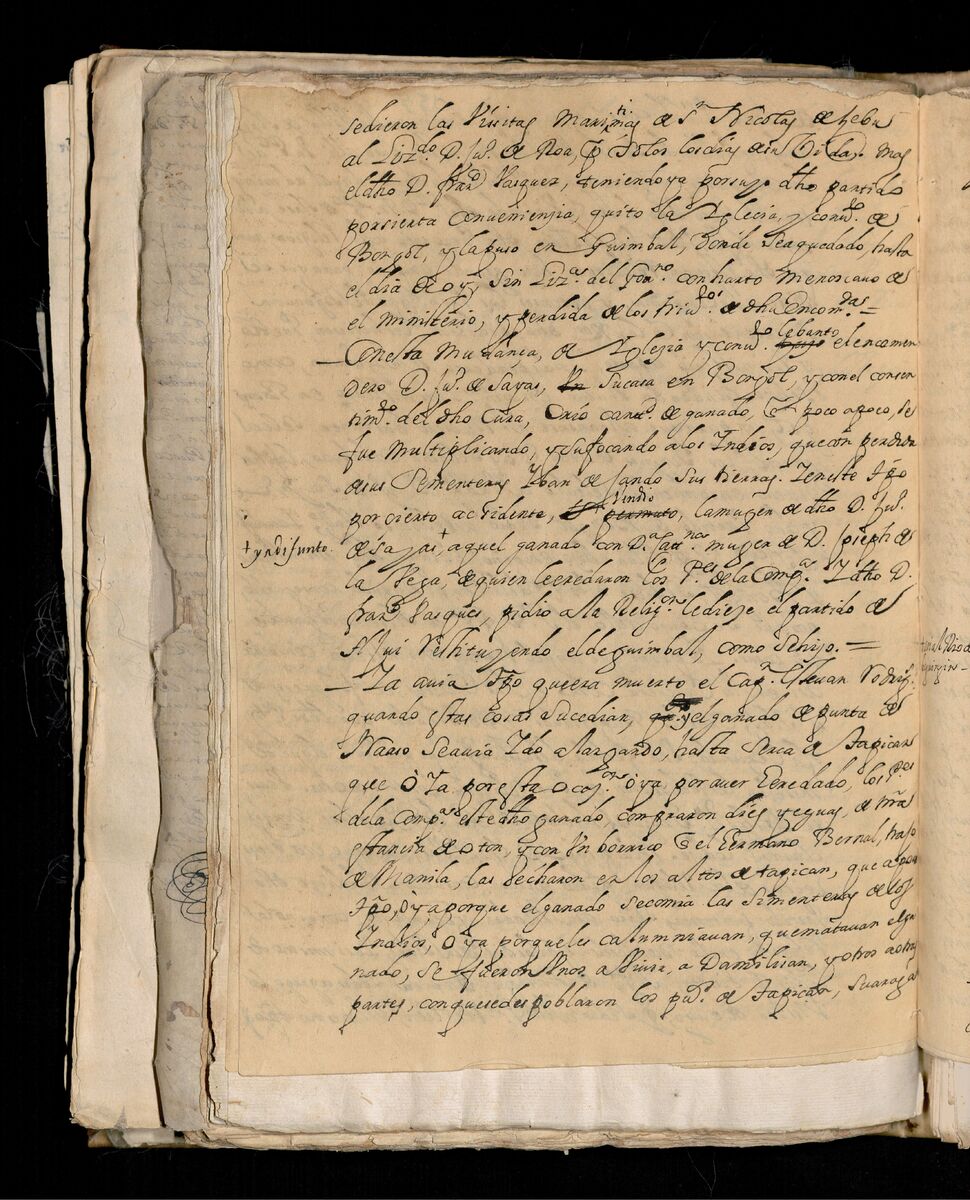 sedieron las Vissitas Marinas ti de Sn Nicolas de Sebu
al Lizdo D. Ju. de Roa, p solos los dias de su Vida. mas
el dho D. Franco Vasquez, teniendo ya por suyo dho partido
por sierta Conueniensia, quito la Yglecia, y conuto. de
Bongol, y la puso en Guimbal, donde sea quedado, hasta
el dia de oy, sin Lizas. del Gouno. con harto menoscauo de
el ministerio, y perdida de los triutos. de dha Encomdas. =
_ Con esta mudansa, de Yglezia y conuto. lebanto el encomen
dero D. Ju. de Sayas, su casa en Bongol, y con el consen
timto. del dho Cura, Crio cantd. de ganado, q poco a poco, se
fue multiplicando, y sufocando a los Indios, que con perdida
de sus Sementeras Yban dejando sus tierras. Y en este tpo
por ciento accidente, Vendio la muger de dho D. Ju.
de Sayas,+ aquel ganado con Da. Catna. muger de D. Joseph de
+ y ndifunto.
la Vega, de quien le eredaron los Pes. de la Compa. Y dho D.
Franco Vasques, pidio a la Religon. le dieje el partido de
Ajui Restituyendo el de guimbal, como se hizo. =
_ Ya auia tpo que era muerto el Capn. Esteuan Rodrigs.
quando estas cosas sucedian, y el ganado de punta de
Naso se auia Ydo alargando, hasta serca de tapican
que o Ya por esta ocaon. o ya por auer Eeredado, los Pes
de la Compa. este dho ganado, compraron dies yeguas, de nra
estancia de oton, y con Vn borrico q el Eermano Bernal, trajo
de Manila, las hecharon en los altos de tapican, que a poco
tpo, o ya porque el ganado se comia las sementeras de los
Indios, o ya porque les calumniauan, que matauan el ga
nado, se fueron Vnos a Viuir, a Damilisan, y otros a otras
partes, con que se despoblaron los pus. de tapican, Suaraga